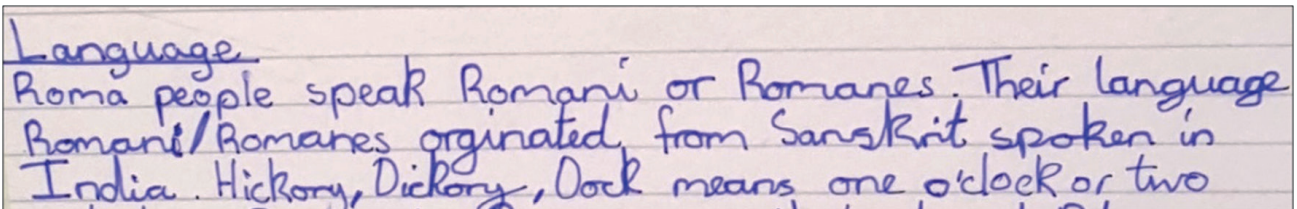 Language
Roma people speak Romani or Romanes. Their language
Romani/Romanes orginated from Sanskrit spoken in
India. Hickory, Dickory, Dock means one o'clock or two